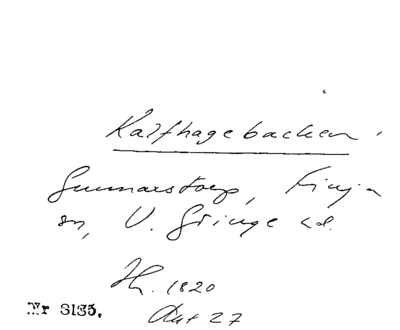 Kalfhagebacken,
Gunnarstorp, Finja
sn, V. Göinge hd.
Hh. 1820
Akt 27
Nr 3135.